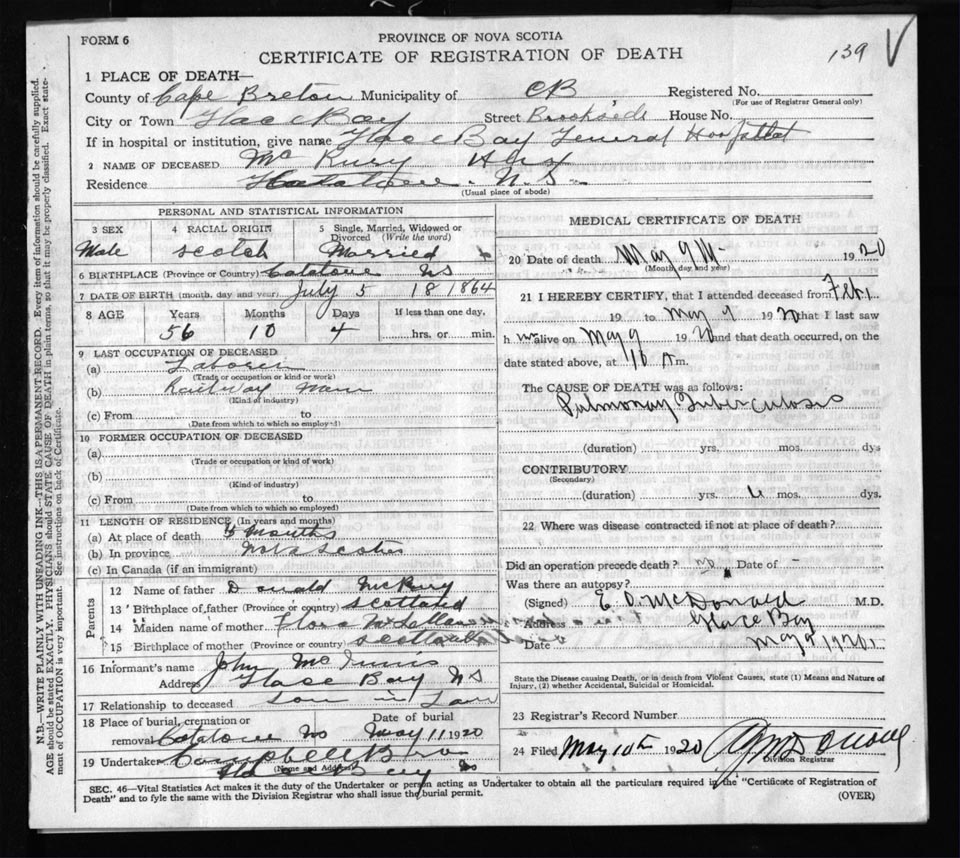 FORM 6
PROVINCE OF NOVA SCOTIA
CERTIFICATE OF REGISTRATION OF DEATH
139 V
1 PLACE OF DEATH—
County of Cape Breton Municipality of CB Registered No.
(For use of Registrar General only)
City or Town Glace Bay Street Brookside House No.
If in hospital or institution, give name Glace Bay General Hospital
2 NAME OF DECEASED Mc Kury
Residence Catalone N.S.
(Usual place of abode)
PERSONAL AND STATISTICAL INFORMATION
3 SEX
4 RACIAL ORIGIN
5 Single, Married, Widowed or Divorced (Write the word)
Male scotch Married
6 BIRTHPLACE (Province or Country) Catalone NS
7 DATE OF BIRTH (month, day and year) July 5 18 1864
8 AGE Years Months Days If less than one day,
56 10 4 hrs. or min.
9 LAST OCCUPATION OF DECEASED
(a) Laborer
(Trade or occupation or kind or work)
(b) Railway
(Kind of industry)
(c) From to
(Date from which to which so employed)
10 FORMER OCCUPATION OF DECEASED
(a)
(Trade or occupation or kind of work)
(b)
(Kind of industry)
(c) From to
(Date from which to which so employed)
11 LENGTH OF RESIDENCE (In years and months)
(a) At place of death months
(b) In province Nova Scotia
(c) In Canada (if an immigrant)
Parents
12 Name of father Donald McKury
13 Birthplace of father (Province or country) scotland
14 Maiden name of mother Flora
15 Birthplace of mother (Province or country) scotland
16 Informant's name John McInnis
Address Glace Bay NS
17 Relationship to deceased Son in Law
18 Place of burial, cremation or removal Catalone NS
Date of burial May 11 1920
19 Undertaker Campbell Bro
(Name and Address)
Glace Bay NS
MEDICAL CERTIFICATE OF DEATH
20 Date of death May 9th 1920
(Month, day and year)
21 I HEREBY CERTIFY, that I attended deceased from Feb 1
19 to May 9 1920 that I last saw
h im alive on May 9 1920 and that death occurred, on the
date stated above, at m.
The CAUSE OF DEATH was as follows:
Pulmonary Tuberculosis
(duration) yrs. mos. dys
CONTRIBUTORY
(Secondary)
(duration) yrs. mos. dys.
22 Where was disease contracted if not at place of death?
Did an operation precede death? no Date of -
Was there an autopsy?
(Signed) E. O. McDonald M.D.
Address Glace Bay
Date May 9 1920.
State the Disease causing Death, or in death from Violent Causes, state (1) Means and Nature of Injury, (2) whether Accidental, Suicidal or Homicidal.
23 Registrar's Record Number
24 Filed May 10th 1920
Division Registrar
SEC. 46—Vital Statistics Act makes it the duty of the Undertaker or person acting as Undertaker to obtain all the particulars required in the "Certificate of Registration of
Death" and to fyle the same with the Division Registrar who shall issue the burial permit.
(OVER)
N.B.—WRITE PLAINLY WITH UNFADING INK—THIS IS A PERMANENT RECORD. Every item of information should be carefully supplied.
AGE should be stated EXACTLY. PHYSICIANS should STATE CAUSE OF DEATH in plain terms, so that it may be properly classified. Exact statement of OCCUPATION is very important. See instructions on back of Certificate.